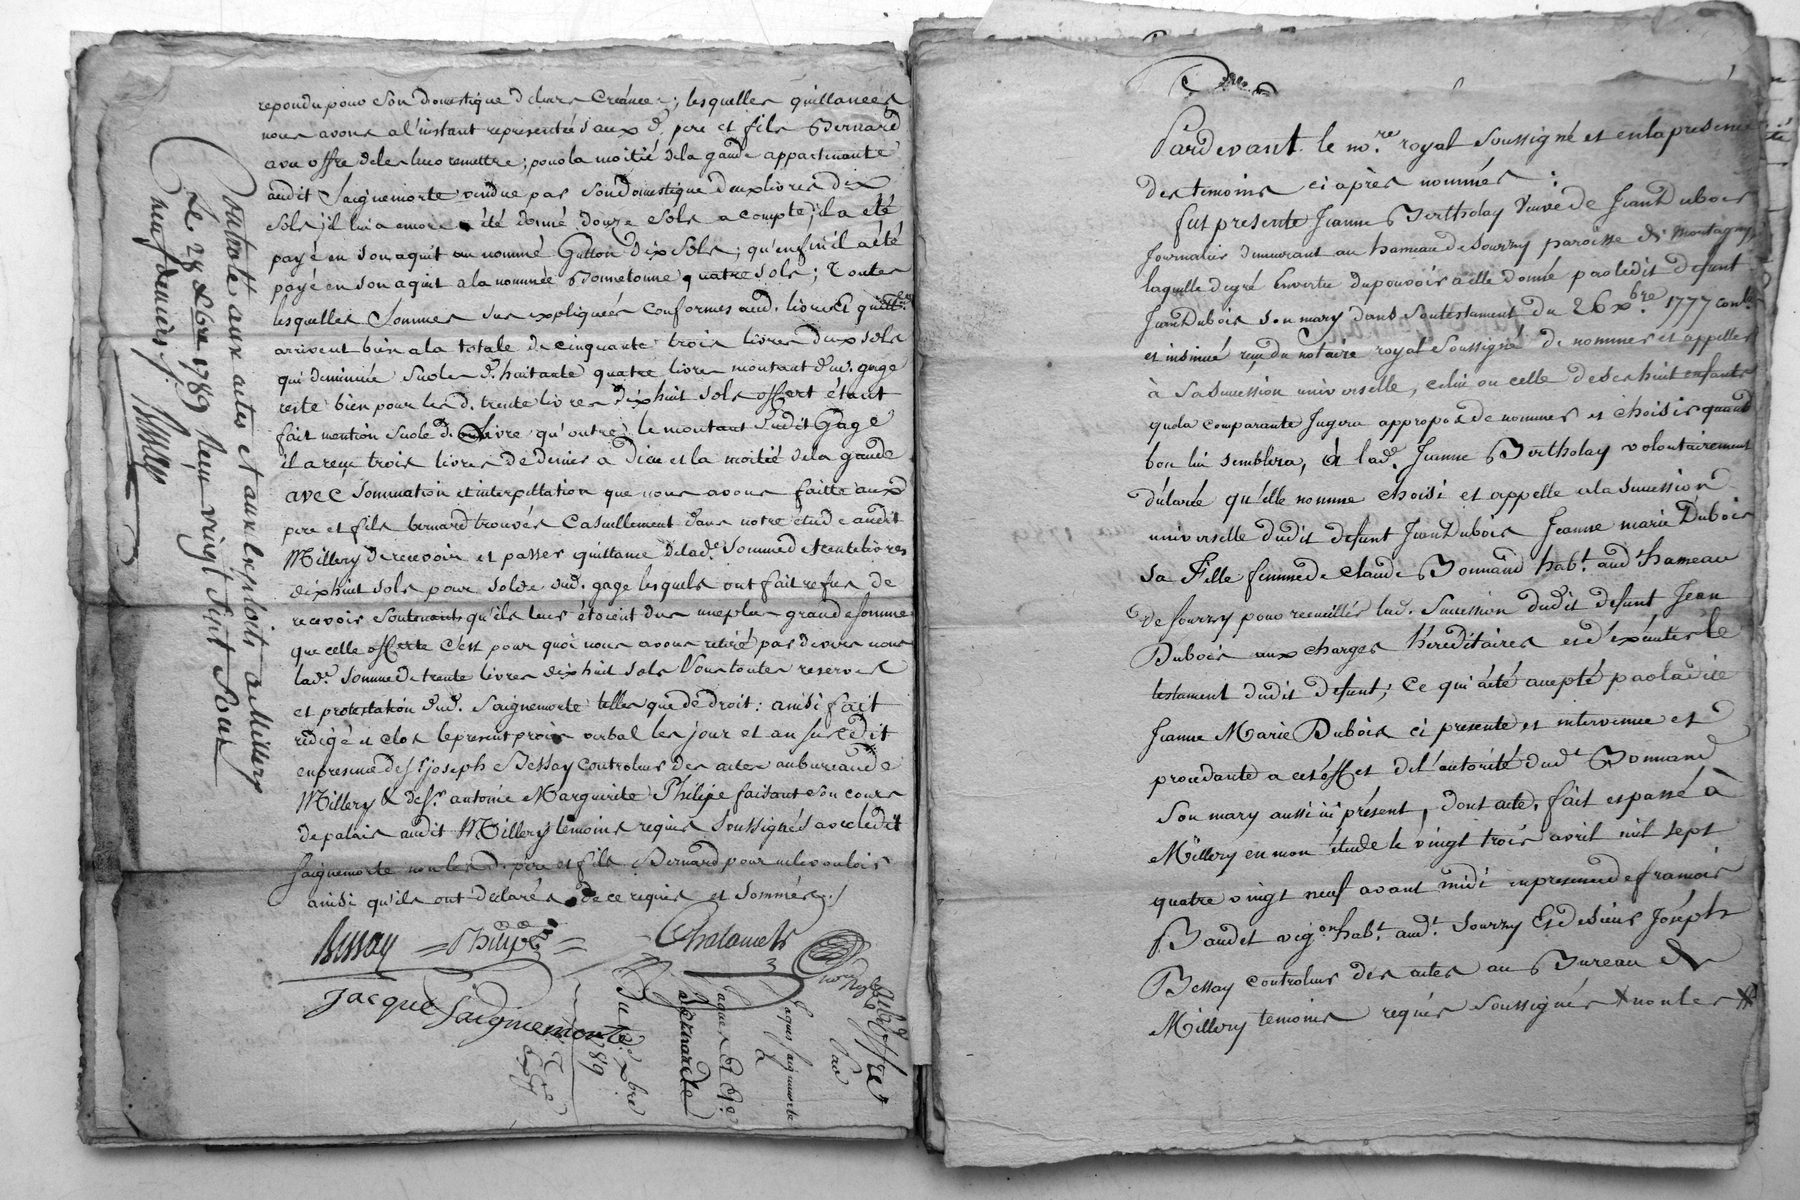 repondu pour Son domestique d'clairs Creance; lesquelles quittances
nous avons a l'instant representées aux d. pere et fils Bernard
avec offre de les leur remettre; pour la moitié de la gaude appartenante
audit Saignemorte vendue par son domestique deux livres dix
Sols; il lui a encore été donné douze sols a compte; il a été
payé en son aquit au nommé Gutton dix sols; qu'enfin il a été
payé en son aquit a la nommée Bonnetonne quatre sols; Toutes
lesquelles Sommes sus expliquées Conformes aud. livre Et quittces
arrivent bien a la totale de cinquante trois livres deux sols
qui diminuée Sur les d. huitante quatre livres montant dud. gage
reste bien pour les d. trente livres dix huit sols offert étant
fait mention Sur le d. Livre qu'outre le montant dudit Gage
il a reçu trois livres de denier a dieu et la moitié de la gaude
avec Sommation et interpellation que nous avons faitte auxd
pere et fils bernard trouvés Casuellement dans notre etude audit
Millery de recevoir et passer quittance de lade. Somme de trente livres
dix huit sols pour solde dud. gage lesquels ont fait refus de
recevoir Soutenants qu'ils leur étoient dus une plus grande somme
que celle offerte c'est pour quoi nous avons retiré par devers nous
lade. Somme de trente livres dix huit sols Sous toutes reserves
et protestation dud. Saignemorte telles que de droit: ainsi fait
redigé et clos le present procès verbal les jour et an susdit
en presence de Sr. joseph Bessay controleur des actes au bureau de
Millery & de Sr. antoine Marguerite Philipe faisant Son cours
de palais audit Millery temoins requis Soussignés avec ledit
Saignemorte non les d. pere et fils Bernard pour ne le vouloir
ainsi qu'ils ont declarés de ce requis et Sommés./
Bessay = Philipe = Chalamel
Jacque Saignemorte
Controllé aux actes et aux exploits a Millery
Le 28 Xbre 1789 Reçu vingt Sept Sous
neuf deniers /.
Bessay
Du
xbre
89
Jaques
Bernard
Jaques Saignemorte
offre
Par
Pardevant le nore. royal Soussigné et en la presence
des temoins ci après nommés:
fut presente Jeanne Bertholay Veuve de Jean Dubois
Journalier demeurant au hameau de Sourzy paroisse de Montagny
laquelle de gré En vertu du pouvoir à elle donné par ledit defunt
Jean Dubois son mary dans Son testament du 26 Xbre. 1777 conlé
et insinué reçu du notaire royal Soussigné de nommer et appeller
à Sa Succession universelle, celui ou celle de Ses huit enfants
que la comparante Jugera appropos de nommer et choisir quand
bon lui semblera, à lade. Jeanne Bertholay volontairement
declaré qu'elle nomme choisi et appelle a la Succession
universelle dudit defunt Jean Dubois Jeanne marie Dubois
Sa Fille femme de Claude Bonnand habt. aud. hameau
de Sourzy pour recueillir lad. Succession dudit defunt Jean
Dubois aux charges héréditaires et d'exécuter le
testament dudit defunt; Ce qui a été accepté par ladite
Jeanne Marie Dubois ci presente et intervenue et
procedante a cet éffet de l'autorité dud. Bonnand
Son mary aussi ici présent, dont acte, fait et passé à
Millery en mon étude le vingt trois avril mil sept
quatre vingt neuf avant midi en presence de francois
Baudet vigon. habt. aud. Sourzy Et de Sieur Joséph
Bessay controleur des actes au Bureau de
Millery temoins requis Soussignés non les